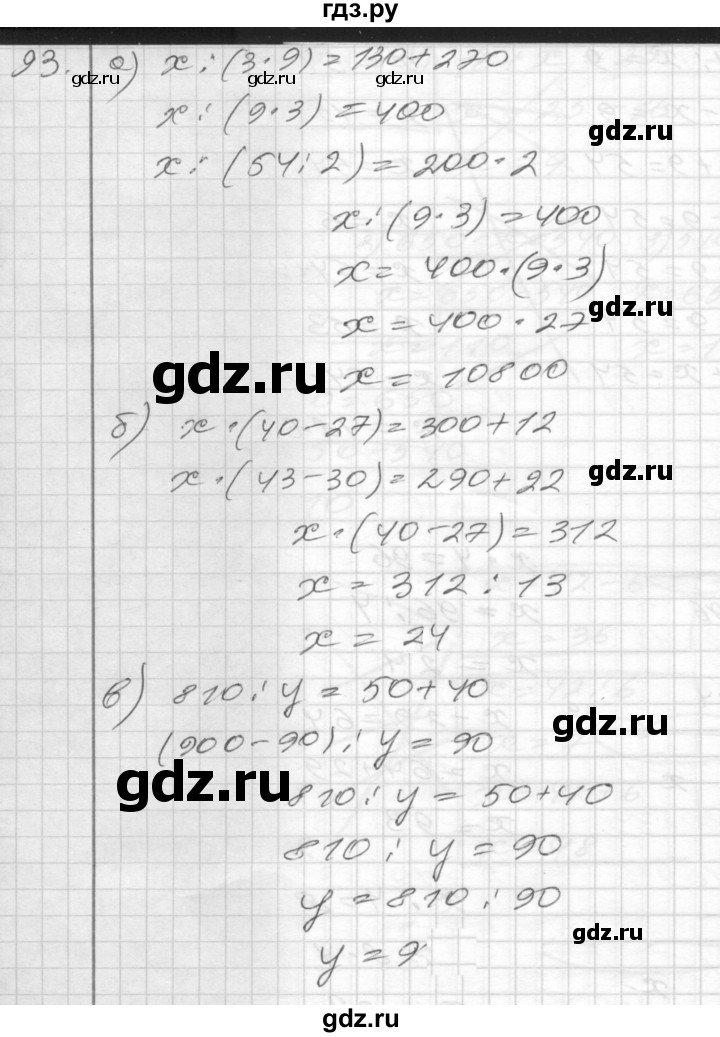 гдз.ру
93. а) x : (3 · 9) = 130 + 270
gdz.ru gdz.ru gdz.ru
x : (9 · 3) = 400
gdz.ru
x : (54 : 2) = 200 · 2
x : (9 · 3) = 400
x = 400 · (9 · 3)
gdz.ru
x = 400 · 27
gdz.ru
x = 10800
б) x · (40 - 27) = 300 + 12
x · (43 - 30) = 290 + 22
gdz.ru
x · (40 - 27) = 312
x = 312 : 13
x = 24
в) 810 : y = 50 + 40
gdz.ru
(900 - 90) : y = 90
gdz.ru
810 : y = 50 + 40
810 : y = 90
y = 810 : 90
gdz.ru
y = 9
gdz.ru